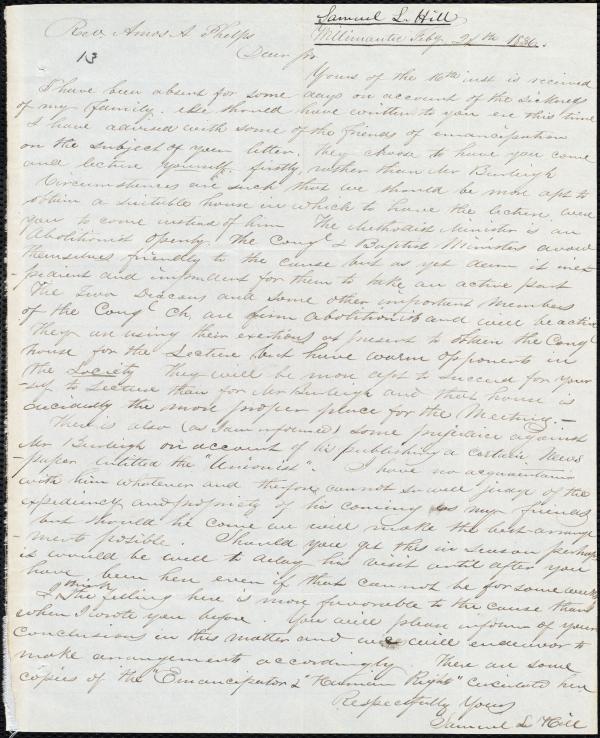 Samuel L. Hill
Rev. Amos A Phelps Willimantic Feby. 24th 1836.
13 Dear Sir
Yours of the 16th inst is received
I have been absent for some days on account of the sickness
of my family. else should have written to you ere this time
I have advised with some of the friends of emancipation
on the subject of your letter. they choose to have you come
and lecture yourself, firstly, rather than Mr Burleigh
Circumstances are such that we should be more apt to
obtain a suitable house in which to have the lecture, were
you to come instead of him The Methodist Minister is an
Abolitionist openly. The Congl & Baptist Ministers avow
themselves friendly to the cause but as yet deem it inex-
-pedient and imprudent for them to take an active part
The Two Deacons and some other important Members
of the Congl Ch. are firm abolitionists and will be active
they are using their exertions at present to obtain the Congl
house for the Lecture but have warm opponents in
the Society they will be more apt to succeed for your
-self to Lecture than for Mr Burleigh and that house is
decidedly the more proper place for the Meeting. -
There is also (as I am informed) some prejudice against
Mr Burleigh on account of his publishing a certain News
-paper entitled the "Unionist". I have no acquaintance
with him whatever and therefore cannot so well judge of the
expediency and propriety of his coming as my friends
but should he come we will make the best arrange
-ments possible. Should you get this in season perhaps
it would be well to delay his visit until after you
have been here even if that cannot be for some weeks
I think the feeling here is more favorable to the cause than
when I wrote you before. You will please inform of your
conclusions in this matter and we will endeavor to
make arrangements accordingly. There are some
copies of the "Emancipator & "Human Rights" circulated here
Respectfully Yours
Samuel L Hill